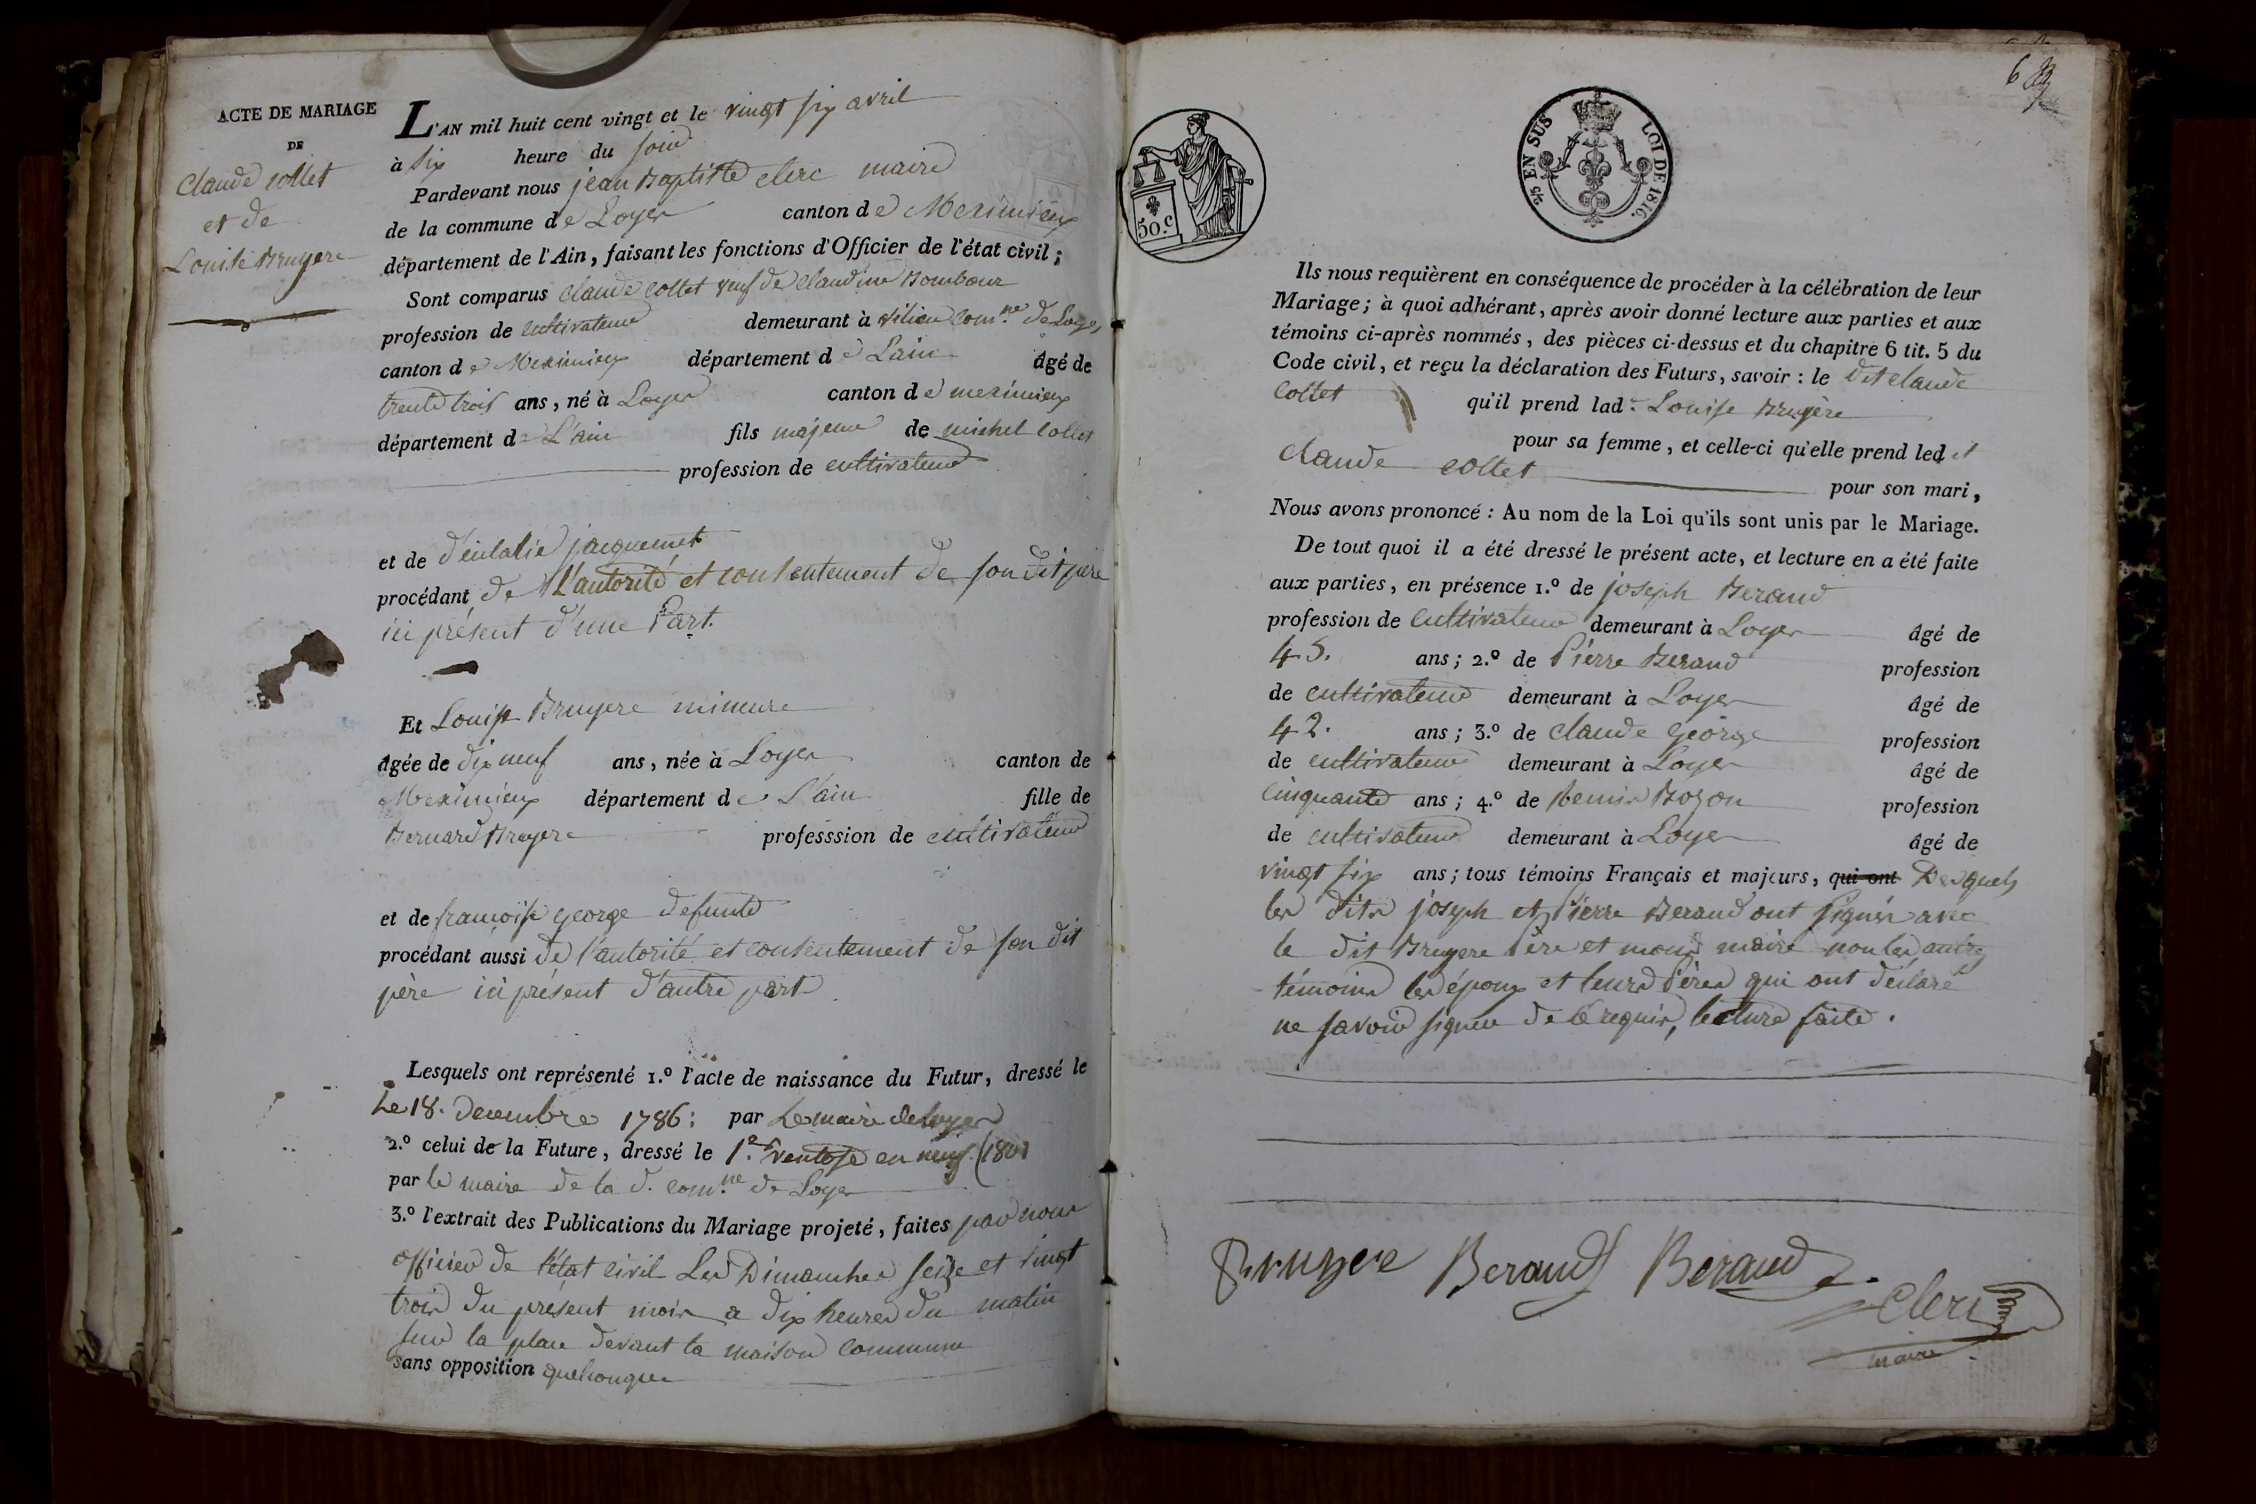 ACTE DE MARIAGE
DE
Claude Collet
et de
Louise Bruyere
L'AN mil huit cent vingt et le vingt six avril
à six heure du soir
Pardevant nous jean Baptiste clerc maire
de la commune de Loyes canton de Meximieux
département de l'Ain, faisant les fonctions d'Officier de l'état civil;
Sont comparus claude collet veuf de claudine
profession de cultivateur demeurant à vilieu com.ne de Loyes
canton de Meximieux département de L'ain âgé de
trente trois ans, né à Loyes canton de meximieux
département de L'ain fils majeur de michel collet
profession de cultivateur
et de d'eulalie jacquemet
procédant de L'autorité et consentement de son dit père
ici présent d'une Part.
Et Louise Bruyere mineure
âgée de dix neuf ans, née à Loyes canton de
Meximieux département de L'ain fille de
Bernard Bruyere professsion de cultivateur
et de françoise george defunte
procédant aussi de l'autorité et consentement de son dit
père ici présent d'autre part
Lesquels ont représenté 1.º l'acte de naissance du Futur, dressé le
Le 18. Decembre 1786: par Le maire de Loyes
2.º celui de la Future, dressé le 1.er ventose en neuf (1801
par le maire de la d. com.ne de Loyes
3.º l'extrait des Publications du Mariage projeté, faites par nous
officier de l'état civil Les Dimanches seize et vingt
trois du présent mois a dix heures du matin
sur la place devant la maison commune
sans opposition quelconque
6
50.c
2/5 EN SUS
LOI DE 1816.
Ils nous requièrent en conséquence de procéder à la célébration de leur
Mariage; à quoi adhérant, après avoir donné lecture aux parties et aux
témoins ci-après nommés, des pièces ci-dessus et du chapitre 6 tit. 5 du
Code civil, et reçu la déclaration des Futurs, savoir: le dit claude
collet qu'il prend lad.e Louise Bruyère
pour sa femme, et celle-ci qu'elle prend led it
claude collet pour son mari,
Nous avons prononcé: Au nom de la Loi qu'ils sont unis par le Mariage.
De tout quoi il a été dressé le présent acte, et lecture en a été faite
aux parties, en présence 1.º de joseph Beraud
profession de Cultivateur demeurant à Loyes âgé de
45. ans; 2.º de Pierre Beraud profession
de cultivateur demeurant à Loyes âgé de
42. ans; 3.º de claude George profession
de cultivateur demeurant à Loyes âgé de
cinquante ans; 4.º de Bozon profession
de cultivateur demeurant à Loyes âgé de
vingt six ans; tous témoins Français et majeurs, qui ont Desquels
les dits joseph et Pierre Beraud ont signés avec
le dit Bruyere Père et nous maire non les autres
témoins les époux et leurs Pères qui ont déclaré
ne savoir signer de ce requis, lecture faite.
Bruyere Beraud Beraud
Clerc
maire